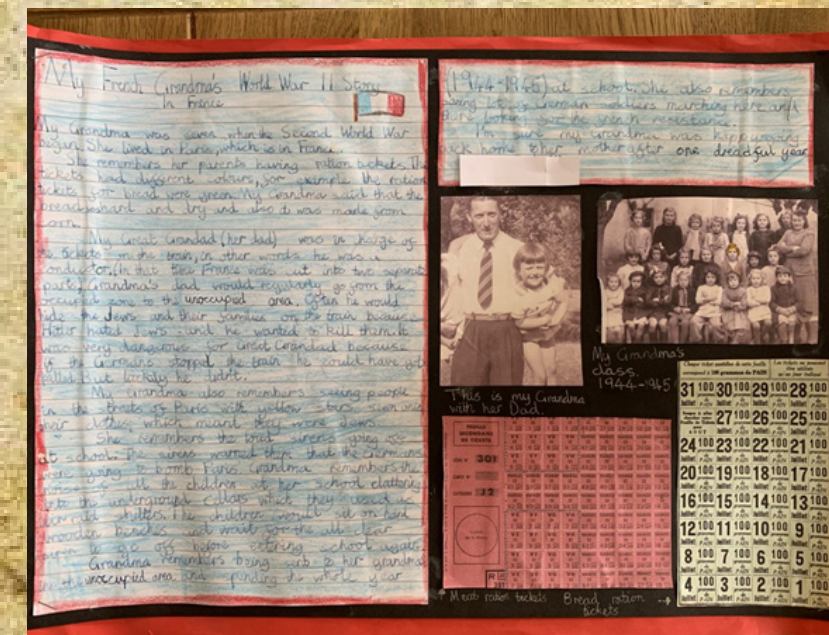 My French Grandma's World War II Story
In France
My Grandma was seven when the Second World War
began. She lived in Paris, which is in France.
She remembers her parents having ration tickets. The
tickets had different colours, for example the ration
tickets for bread were green. My Grandma said that the
bread was hard and dry and also it was made from
corn.
My Great Grandad (her dad) was in charge of
the tickets on the train, in other words he was a
conductor. In that time France was cut into two separate
parts. Grandma's dad would regularly go from the
occupied zone to the unoccupied area. Often he would
hide the Jews and their families on the train because
Hitler hated Jews and he wanted to kill them. It
was very dangerous for Great Grandad because
if the Germans stopped the train he could have got
killed. But luckily he didn't.
My Grandma also remembers seeing people
in the streets of Paris with yellow stars on
their clothes, which meant they were Jews.
She remembers the loud sirens going off
at school. The sirens warned them that the Germans
were going to bomb Paris. Grandma remembers the
noise of all the children at her school clattering
into the underground cellars which they used as
shelters. The children would sit on hard
wooden benches and wait for the all clear
to go off before entering school again.
Grandma remembers being sent to her grandma
in the unoccupied area and spending the whole year
(1944-1945) at school. She also remembers
seeing lots of German soldiers marching here and
there looking for the french resistance.
I'm sure my Grandma was happy going
back home to her mother after one dreadful year
This is my Grandma
with her Dad.
My Grandma's
class.
1944-1945
FEUILLE
SEMESTRIELLE
DE TICKETS
301
J2
Meat ration tickets
Bread ration
tickets
31 100 30 100 29 100 28 100
27 100 26 100 25 100
24 100 23 100 22 100 21 100
20 100 19 100 18 100 17 100
16 100 15 100 14 100 13 100
12 100 11 100 10 100 9 100
8 100 7 100 6 100 5 100
4 100 3 100 2 100 1 100